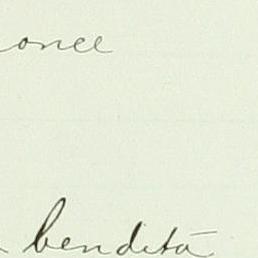 once
bendita